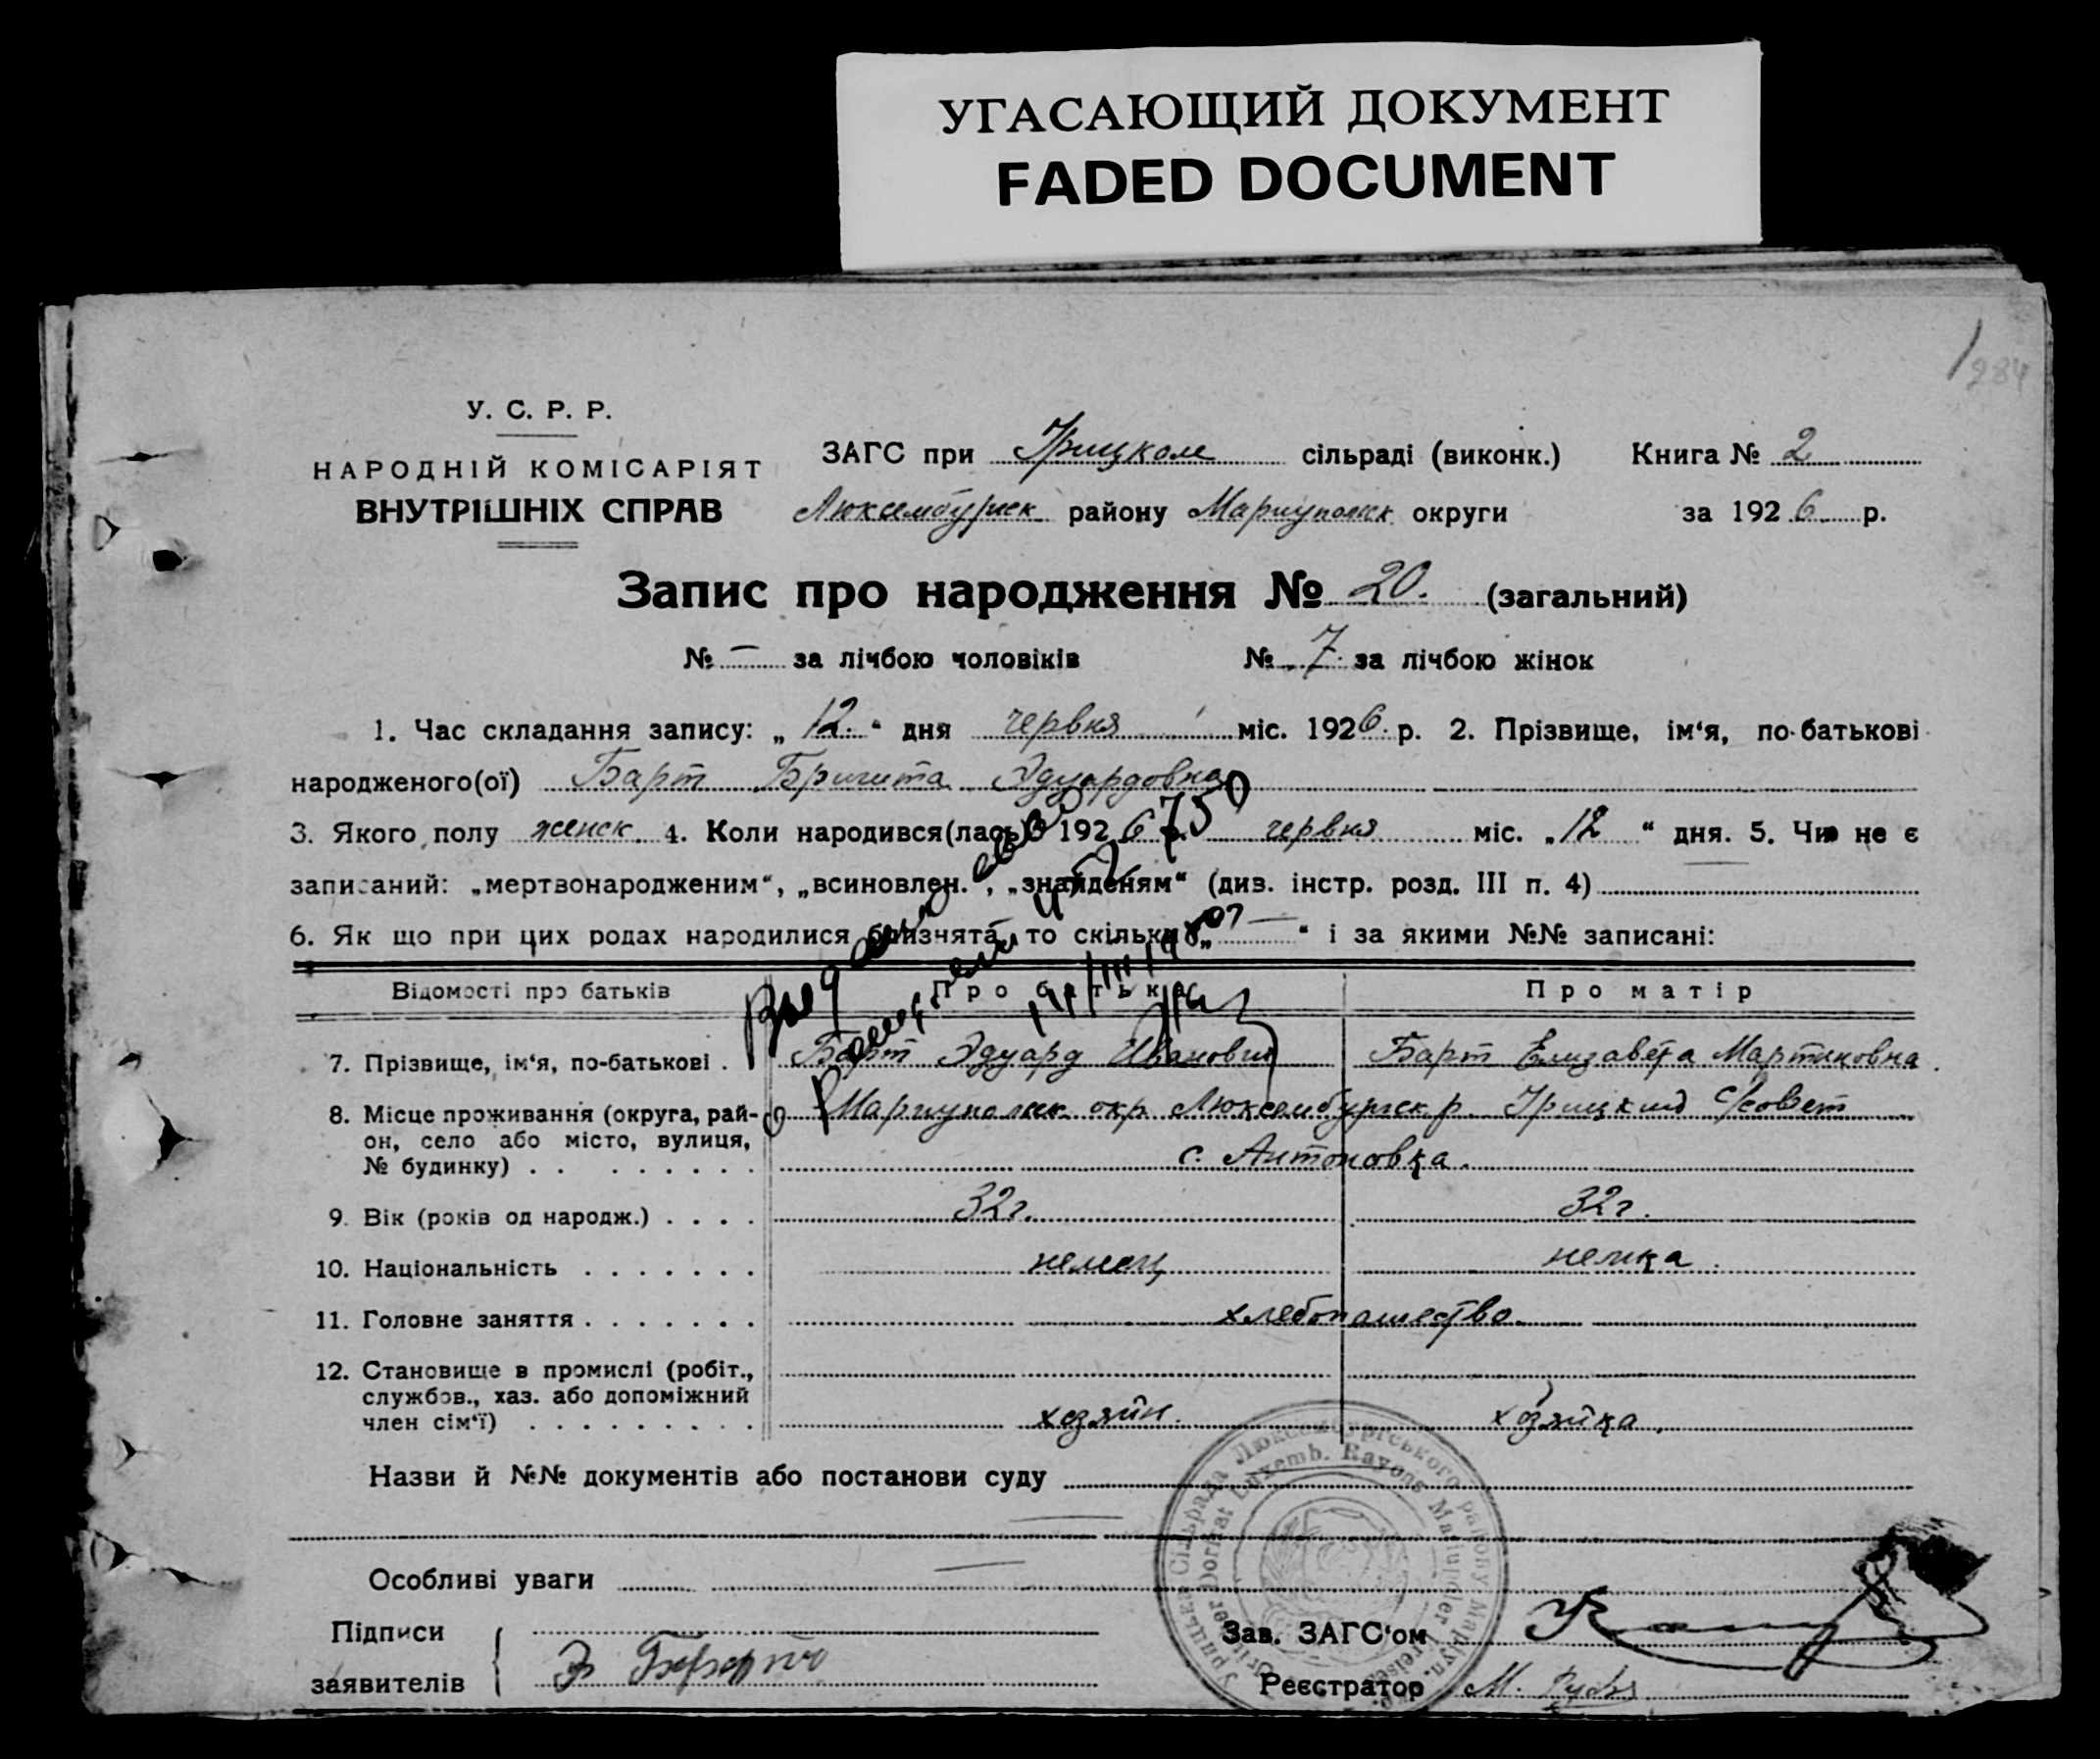 УГАСАЮЩИЙ ДОКУМЕНТ
FADED DOCUMENT
284
У. С. Р. Р.
НАРОДНІЙ КОМІСАРІЯТ
ВНУТРІШНІХ СПРАВ
ЗАГС при Урицком сільраді (виконк.) Книга № 2
Люксембургск району Мариупольск округи за 1926 р.
Запис про народження № 20. (загальний)
№ — за лічбою чоловіків № 7. за лічбою жінок
1. Час складання запису: „12." дня червня міс. 1926. р. 2. Прізвище, ім'я, по-батькові
народженого(ої) Барт Бригита Эдуардовна
3. Якого полу женск. 4. Коли народився(лась) 1926 р. червня міс. „12" дня. 5. Чи не є
записаний: „мертвонародженим", „всиновлен.", „знайденям" (див. інстр. розд. III п. 4)
6. Як що при цих родах народилися близнята, то скільки „—" і за якими №№ записані:
750
Відомості про батьків Про батька Про матір
7. Прізвище, ім'я, по-батькові . Барт Эдуард Иванович Барт Елизавета Мартиновна.
8. Місце проживання (округа, рай-
он, село або місто, вулиця,
№ будинку) . . . . . . . . . Мариупольск. окр Люксембургск. р. Урицкий с/совет
с. Антоновка.
9. Вік (років од народж.) . . . . 32 г. 32 г.
10. Національність . . . . . . . немец немка.
11. Головне заняття . . . . . . . хлебопашество.
12. Становище в промислі (робіт.,
службов., хаз. або допоміжний
член сім'ї) . . . . . . . . . хозяин. хозяйка.
Назви й №№ документів або постанови суду
Особливі уваги
Підписи
заявителів
Э
Зав. ЗАГС'ом
Реєстратор М.
Урицька Сільрада Люксембургського району Маріуп.
Dorfrat Luxemb. Rayons Mariupoler Kreises